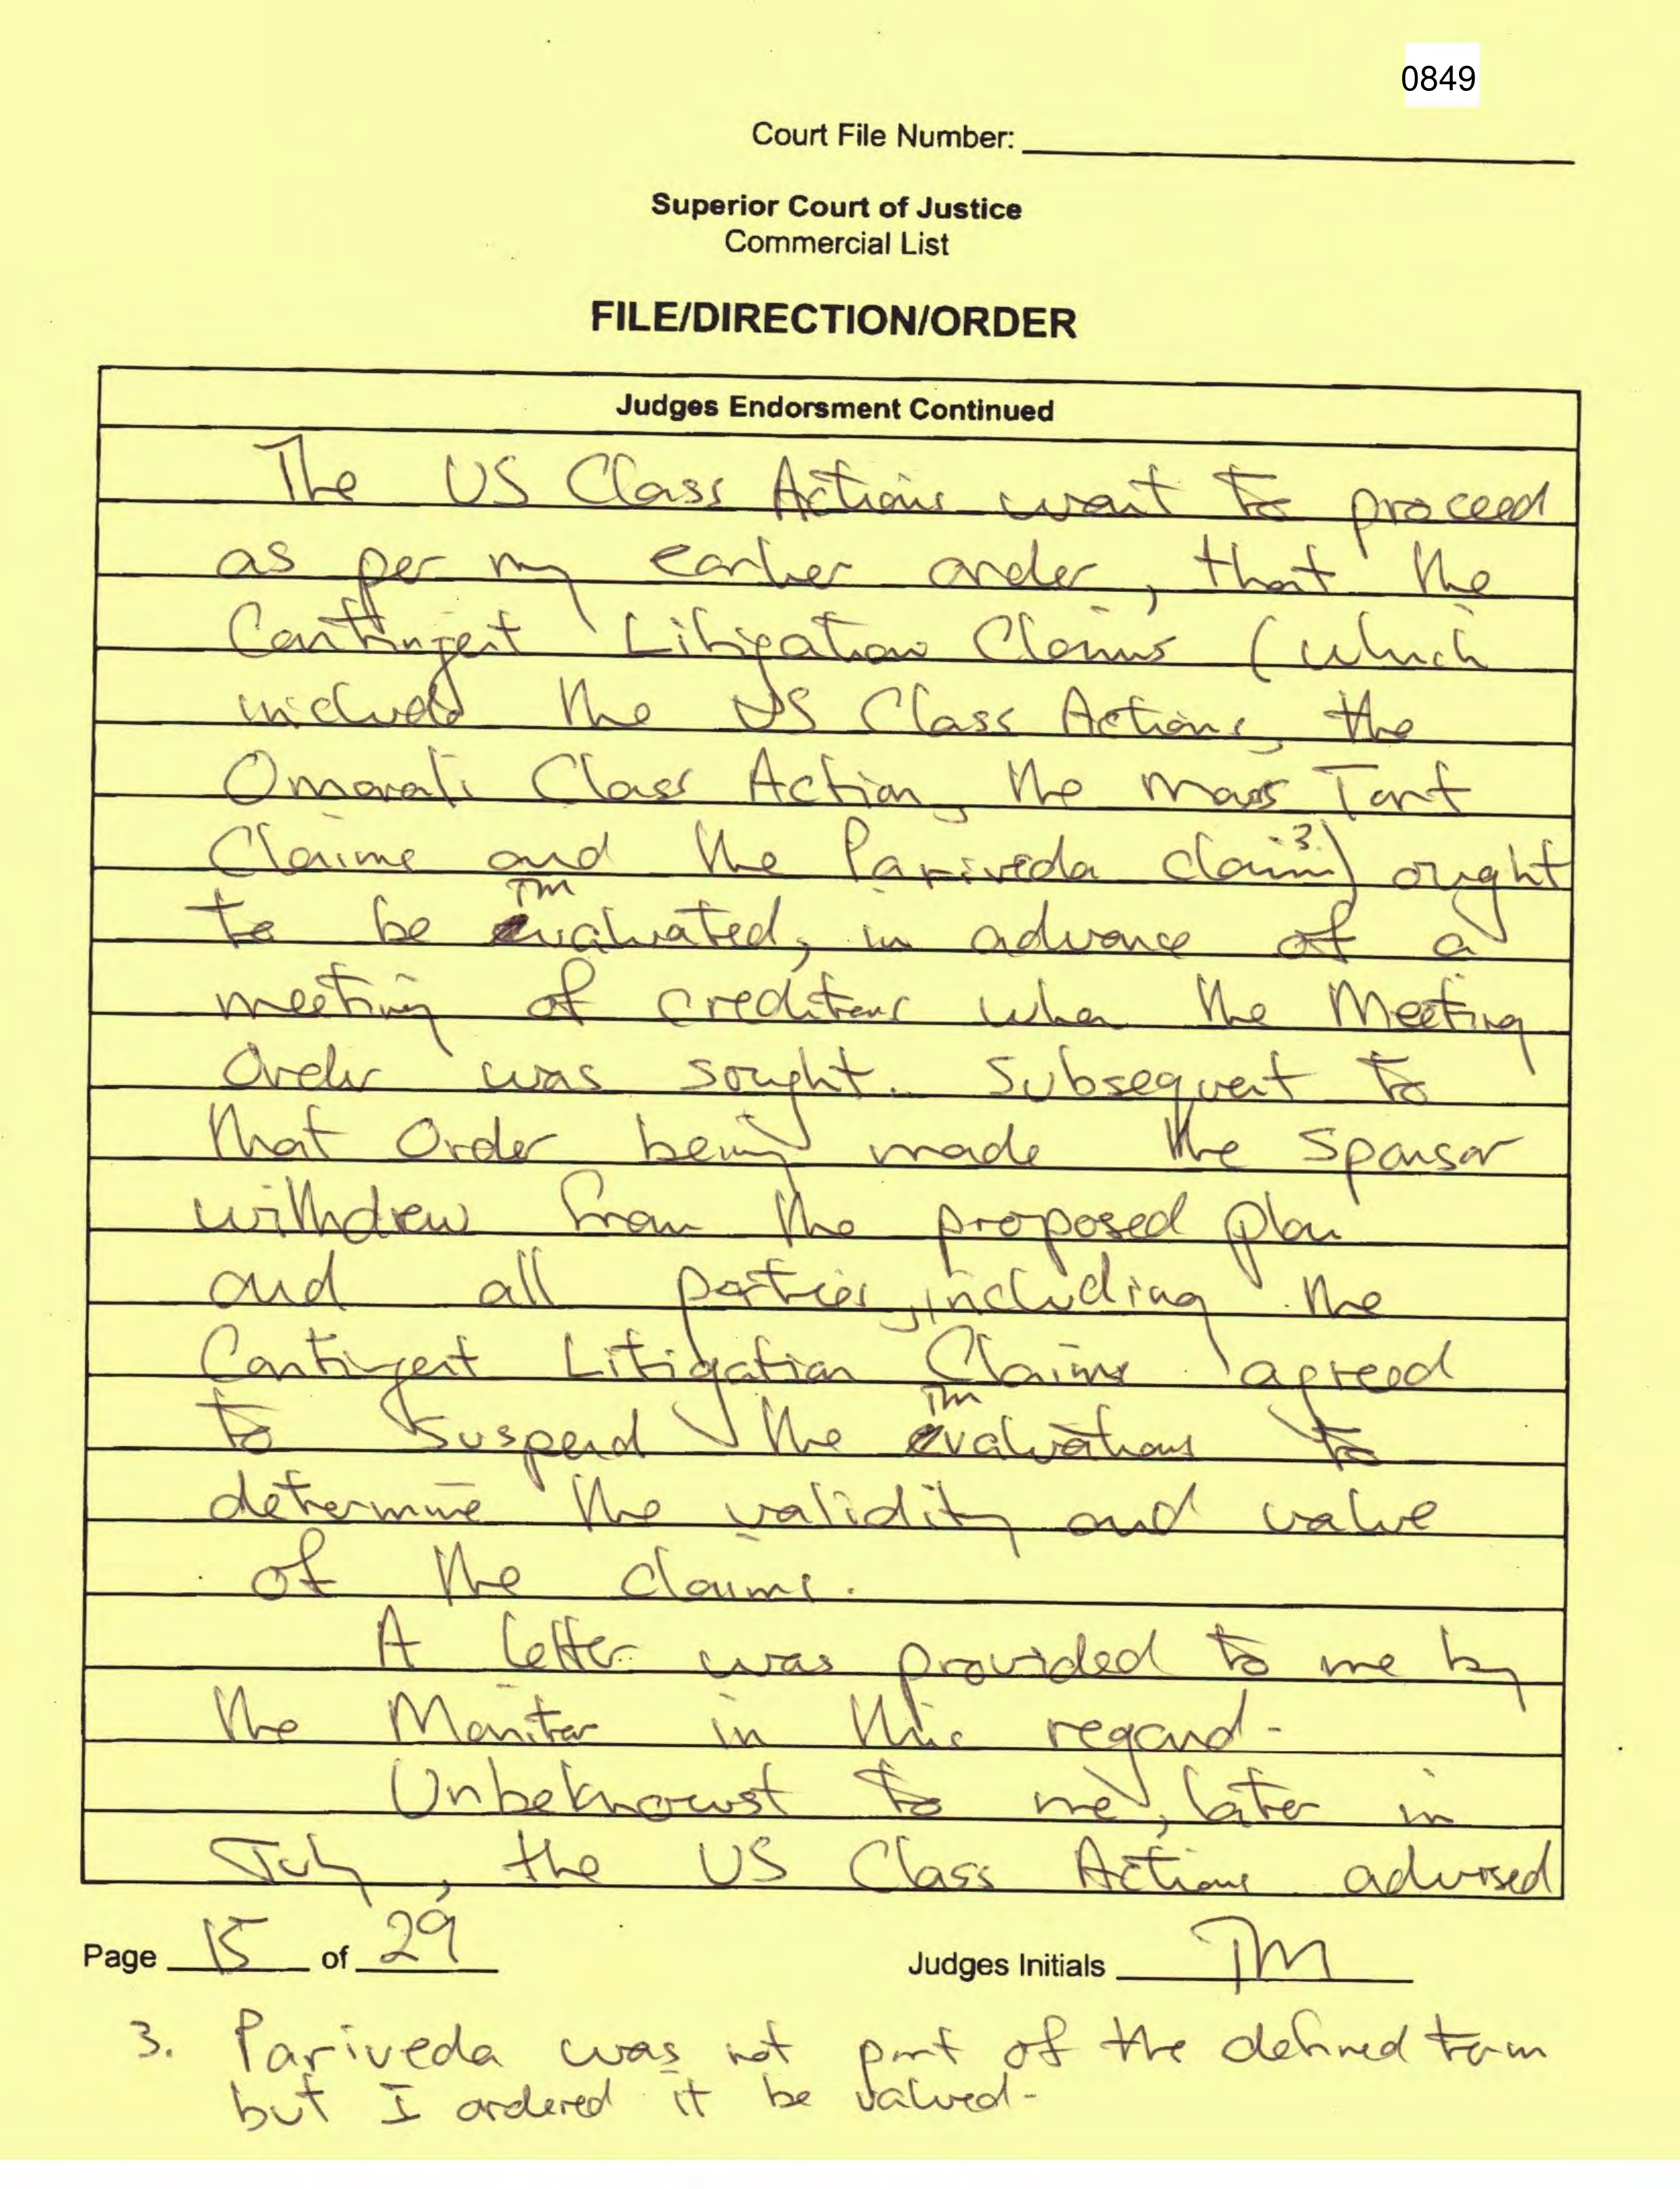 0849
Court File Number:
Superior Court of Justice
Commercial List
FILE/DIRECTION/ORDER
Judges Endorsment Continued
The US Class Actions want to proceed
as per my earlier order, that the
Contingent Litigation Claims (which
include the US Class Actions, the
Omarali Class Action, the Mass Tort
Claims and the Pariveda claim 3.) ought
TM
to be evaluated, in advance of a
meeting of creditors when the Meeting
Order was sought. Subsequent to
that Order being made the sponsor
withdrew from the proposed plan
and all parties, including the
Contingent Litigation Claims agreed
TM
to suspend the evaluations to
determine the validity and value
of the claims.
A letter was provided to me by
the Monitor in this regard.
Unbeknowst to me, later in
July, the US Class Actions advised
Page 15 of 29
Judges Initials TM
3. Pariveda was not part of the defined term
but I ordered it be valued.